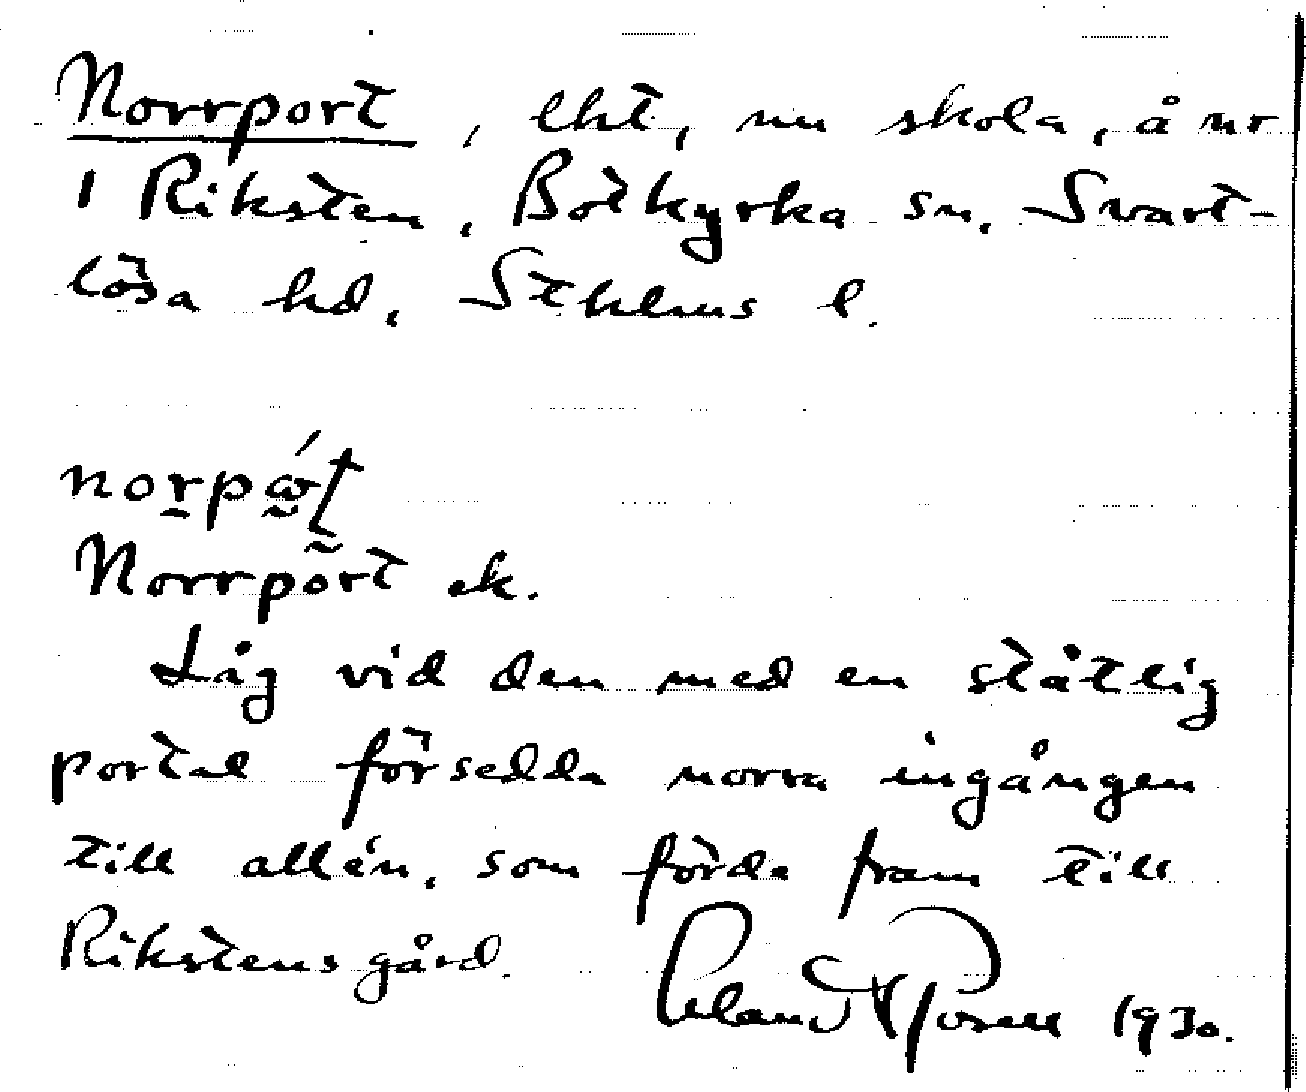 Norrport, lht, nu skola, å nr
1 Riksten, Botkyrka sn, Svart-
lösa hd, Sthlms l.
Norrpört ek.
Låg vid den med en ståtlig
portal försedda norra ingången
till allén, som förde fram till
Rikstens gård. Erland Rosell 1930.